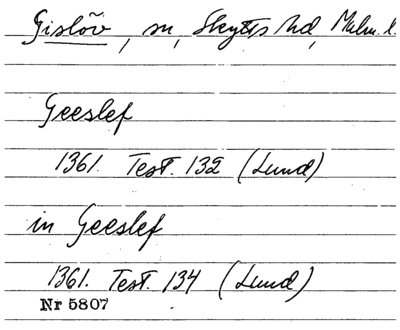 Gislöv, sn, Skytts hd, Malm. l.
Geeslef
1361. Test. 132 (Lund)
in Geeslef
1361. Test. 134 (Lund)
Nr 5807